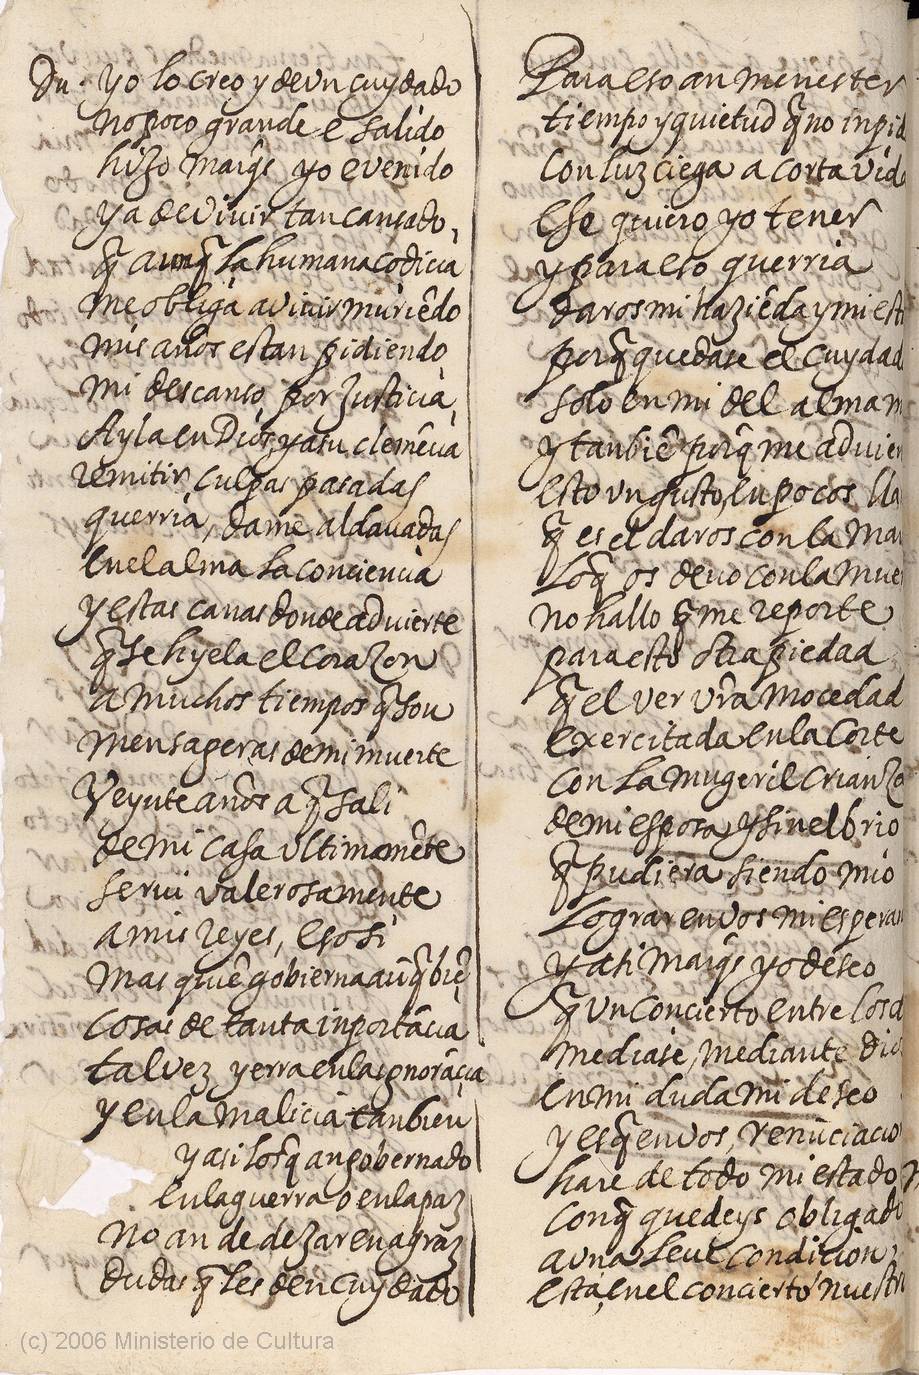 Du. yo lo creo y de un cuydado
no poco grande e salido
hijo marq̃s yo e venido
ya de vivir tan cansado,
q̃ aunq̃ la humana codicia
me obliga a vivir muriẽdo
mis años estan pidiendo
mi descanso por justicia,
Ayla en Dios, y a su clemẽcia
remitir culpas pasadas
querria, dame aldavadas
en el alma la conciencia
y estas canas donde advierte
q̃ se hyela el corazon
a muchos tiempos q̃ son
mensageras de mi muerte
Veynte años a q̃ sali
de mi casa ultimamẽte
servi valerosamente
a mis reyes, eso si
mas quiẽ gobierna aũq̃ biẽ
cosas de tanta inportãcia
tal vez yerra en la ignorãcia
y en la malicia tanbien
y asi los q̃ an gobernado
en la guerra o en la paz
no an de dezar en agraz
dudas q̃ les den cuydado
Para eso an menester
tiempo y quietud q̃ no inpid
con luz ciega a corta vid
ese quiero yo tener
y para eso querria
daros mi haziẽda y mi est
porq̃ quedase el cuydad
solo en mi del alma m
y tanbiẽ porq̃ me advier
esto un gusto, en pocos lla
q̃ es el daros con la ma
lo q̃ os devo con la mue
no hallo q̃ me reporte
para esto otra piedad
q̃ el ver vr̃a mocedad
exercitada en la corte
con la mugeril crianza
de mi esposa, y sin el brio
q̃ pudiera siendo mio
lograr en vos mi esperan
y a ti marq̃s yo deseo
q̃ un concierto entre los d
mediase, mediante dio
en mi duda mi deseo
y es q̃ en vos, renũciacio
hare de todo mi estado
con q̃ quedeys obligado
a una leve condicion
està, en el concierto nuestr
(c) 2006 Ministerio de Cultura